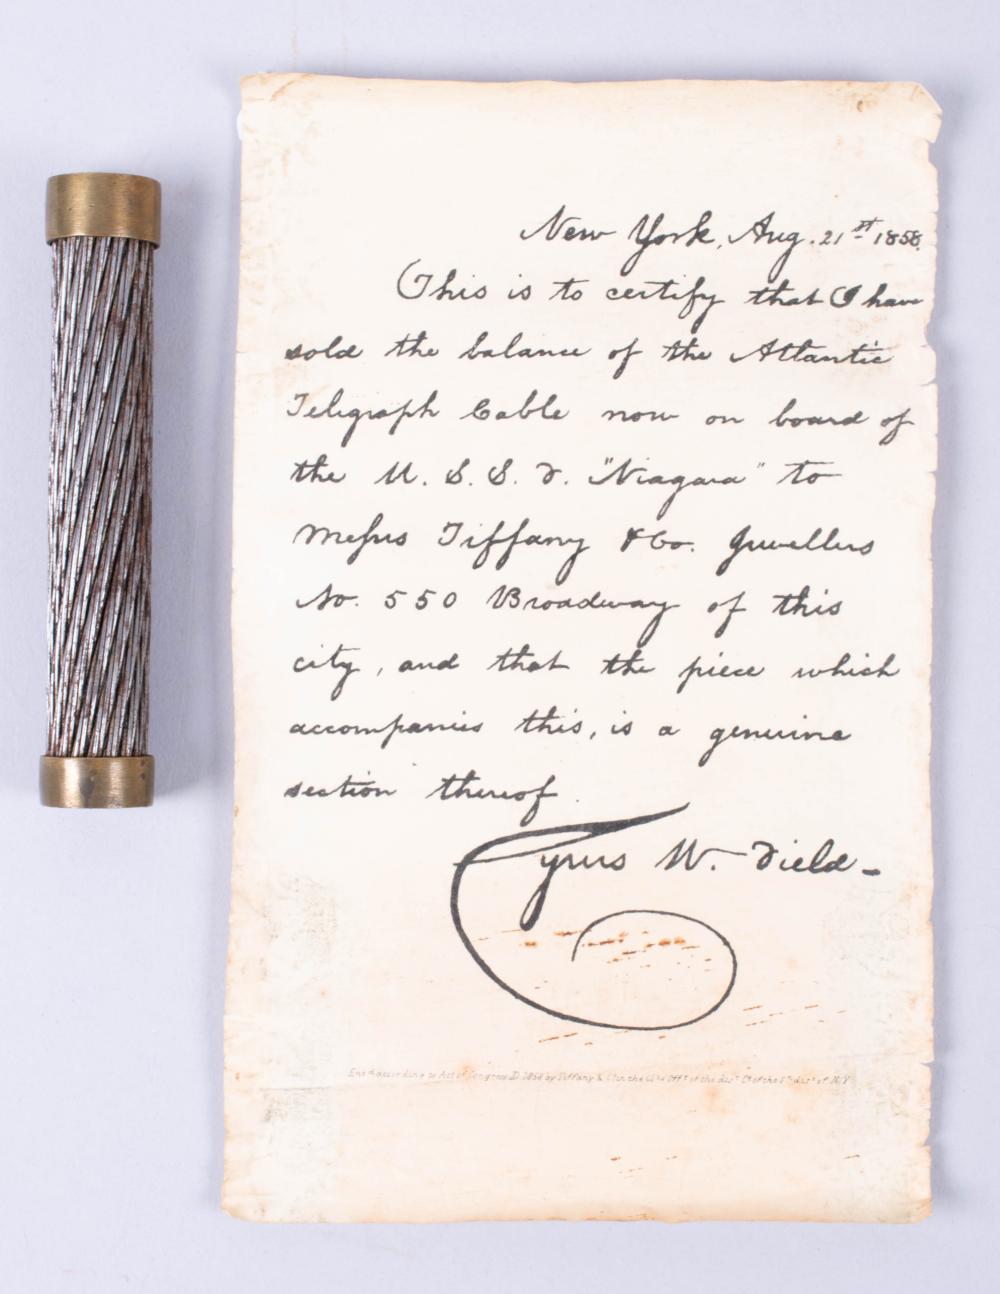 New York, Aug. 21st 1858.
This is to certify that I have
sold the balance of the Atlantic
Telegraph Cable now on board of
the U. S. S. F. "Niagara" to
Messrs Tiffany & Co. Jewellers
No. 550 Broadway of this
city, and that the piece which
accompanies this, is a genuine
section thereof.
Cyrus W. Field
Entd according to Act of Congress AD 1858 by Tiffany & Co in the Clks Offe of the dist Ct of the Sn dist of N.Y